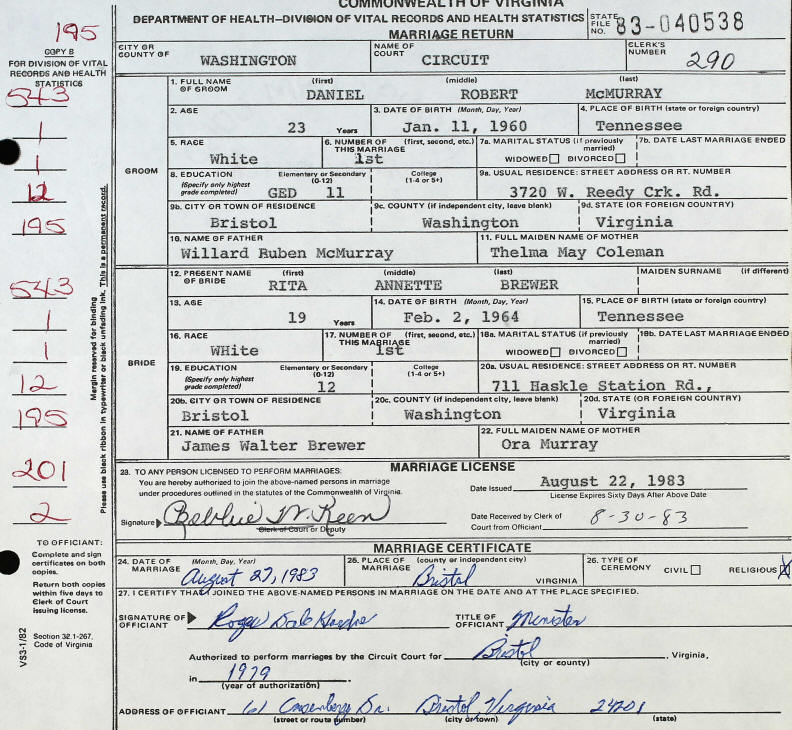 COMMONWEALTH OF VIRGINIA
DEPARTMENT OF HEALTH—DIVISION OF VITAL RECORDS AND HEALTH STATISTICS
MARRIAGE RETURN
STATE FILE NO. 83-040538
195
COPY B
FOR DIVISION OF VITAL RECORDS AND HEALTH STATISTICS
543
1
1
12
195
543
1
1
12
195
201
2
Margin reserved for binding
Please use black ribbon in typewriter or black unfading ink. This is a permanent record.
TO OFFICIANT:
Complete and sign certificates on both copies.
Return both copies within five days to Clerk of Court issuing license.
Section 32.1-267, Code of Virginia
VS3-1/82
CITY OR COUNTY OF WASHINGTON
NAME OF COURT CIRCUIT
CLERK'S NUMBER 290
GROOM
1. FULL NAME OF GROOM (first) (middle) (last)
DANIEL ROBERT McMURRAY
2. AGE 23 Years
3. DATE OF BIRTH (Month, Day, Year) Jan. 11, 1960
4. PLACE OF BIRTH (state or foreign country) Tennessee
5. RACE White
6. NUMBER OF THIS MARRIAGE (first, second, etc.) 1st
7a. MARITAL STATUS (if previously married) WIDOWED DIVORCED
7b. DATE LAST MARRIAGE ENDED
8. EDUCATION (Specify only highest grade completed) Elementary or Secondary (0-12) College (1-4 or 5+)
GED 11
9a. USUAL RESIDENCE: STREET ADDRESS OR RT. NUMBER
3720 W. Reedy Crk. Rd.
9b. CITY OR TOWN OF RESIDENCE Bristol
9c. COUNTY (if independent city, leave blank) Washington
9d. STATE (OR FOREIGN COUNTRY) Virginia
10. NAME OF FATHER Willard Ruben McMurray
11. FULL MAIDEN NAME OF MOTHER Thelma May Coleman
BRIDE
12. PRESENT NAME OF BRIDE (first) (middle) (last) MAIDEN SURNAME (if different)
RITA ANNETTE BREWER
13. AGE 19 Years
14. DATE OF BIRTH (Month, Day, Year) Feb. 2, 1964
15. PLACE OF BIRTH (state or foreign country) Tennessee
16. RACE WHite
17. NUMBER OF THIS MARRIAGE (first, second, etc.) 1st
18a. MARITAL STATUS (if previously married) WIDOWED DIVORCED
18b. DATE LAST MARRIAGE ENDED
19. EDUCATION (Specify only highest grade completed) Elementary or Secondary (0-12) College (1-4 or 5+)
12
20a. USUAL RESIDENCE: STREET ADDRESS OR RT. NUMBER
711 Haskle Station Rd.,
20b. CITY OR TOWN OF RESIDENCE Bristol
20c. COUNTY (if independent city, leave blank) Washington
20d. STATE (OR FOREIGN COUNTRY) Virginia
21. NAME OF FATHER James Walter Brewer
22. FULL MAIDEN NAME OF MOTHER Ora Murray
MARRIAGE LICENSE
23. TO ANY PERSON LICENSED TO PERFORM MARRIAGES:
You are hereby authorized to join the above-named persons in marriage
under procedures outlined in the statutes of the Commonwealth of Virginia.
Date Issued August 22, 1983
License Expires Sixty Days After Above Date
Signature Bobbie W. Keen
Clerk of Court or Deputy
Date Received by Clerk of Court from Officiant 8-30-83
MARRIAGE CERTIFICATE
24. DATE OF MARRIAGE (Month, Day, Year) August 27, 1983
25. PLACE OF MARRIAGE (county or independent city) Bristol VIRGINIA
26. TYPE OF CEREMONY CIVIL RELIGIOUS X
27. I CERTIFY THAT I JOINED THE ABOVE-NAMED PERSONS IN MARRIAGE ON THE DATE AND AT THE PLACE SPECIFIED.
SIGNATURE OF OFFICIANT Roger Dale
TITLE OF OFFICIANT Minister
Authorized to perform marriages by the Circuit Court for Bristol, Virginia,
(city or county)
in 1979.
(year of authorization)
ADDRESS OF OFFICIANT 61 Dr. Bristol, Virginia 24201
(street or route number) (city or town) (state)